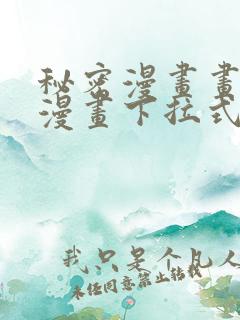 秘密漫畫畫
漫畫下拉式
我只是个凡人
未经同意禁止转载